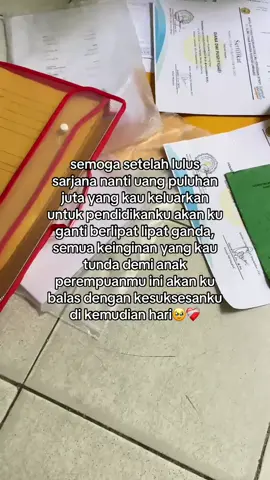 semoga setelah lulus
sarjana nanti uang puluhan
juta yang kau keluarkan
untuk pendidikanku akan ku
ganti berlipat lipat ganda,
semua keinginan yang kau
tunda demi anak
perempuanmu ini akan ku
balas dengan kesuksesanku
di kemudian hari🥹❤️‍🩹